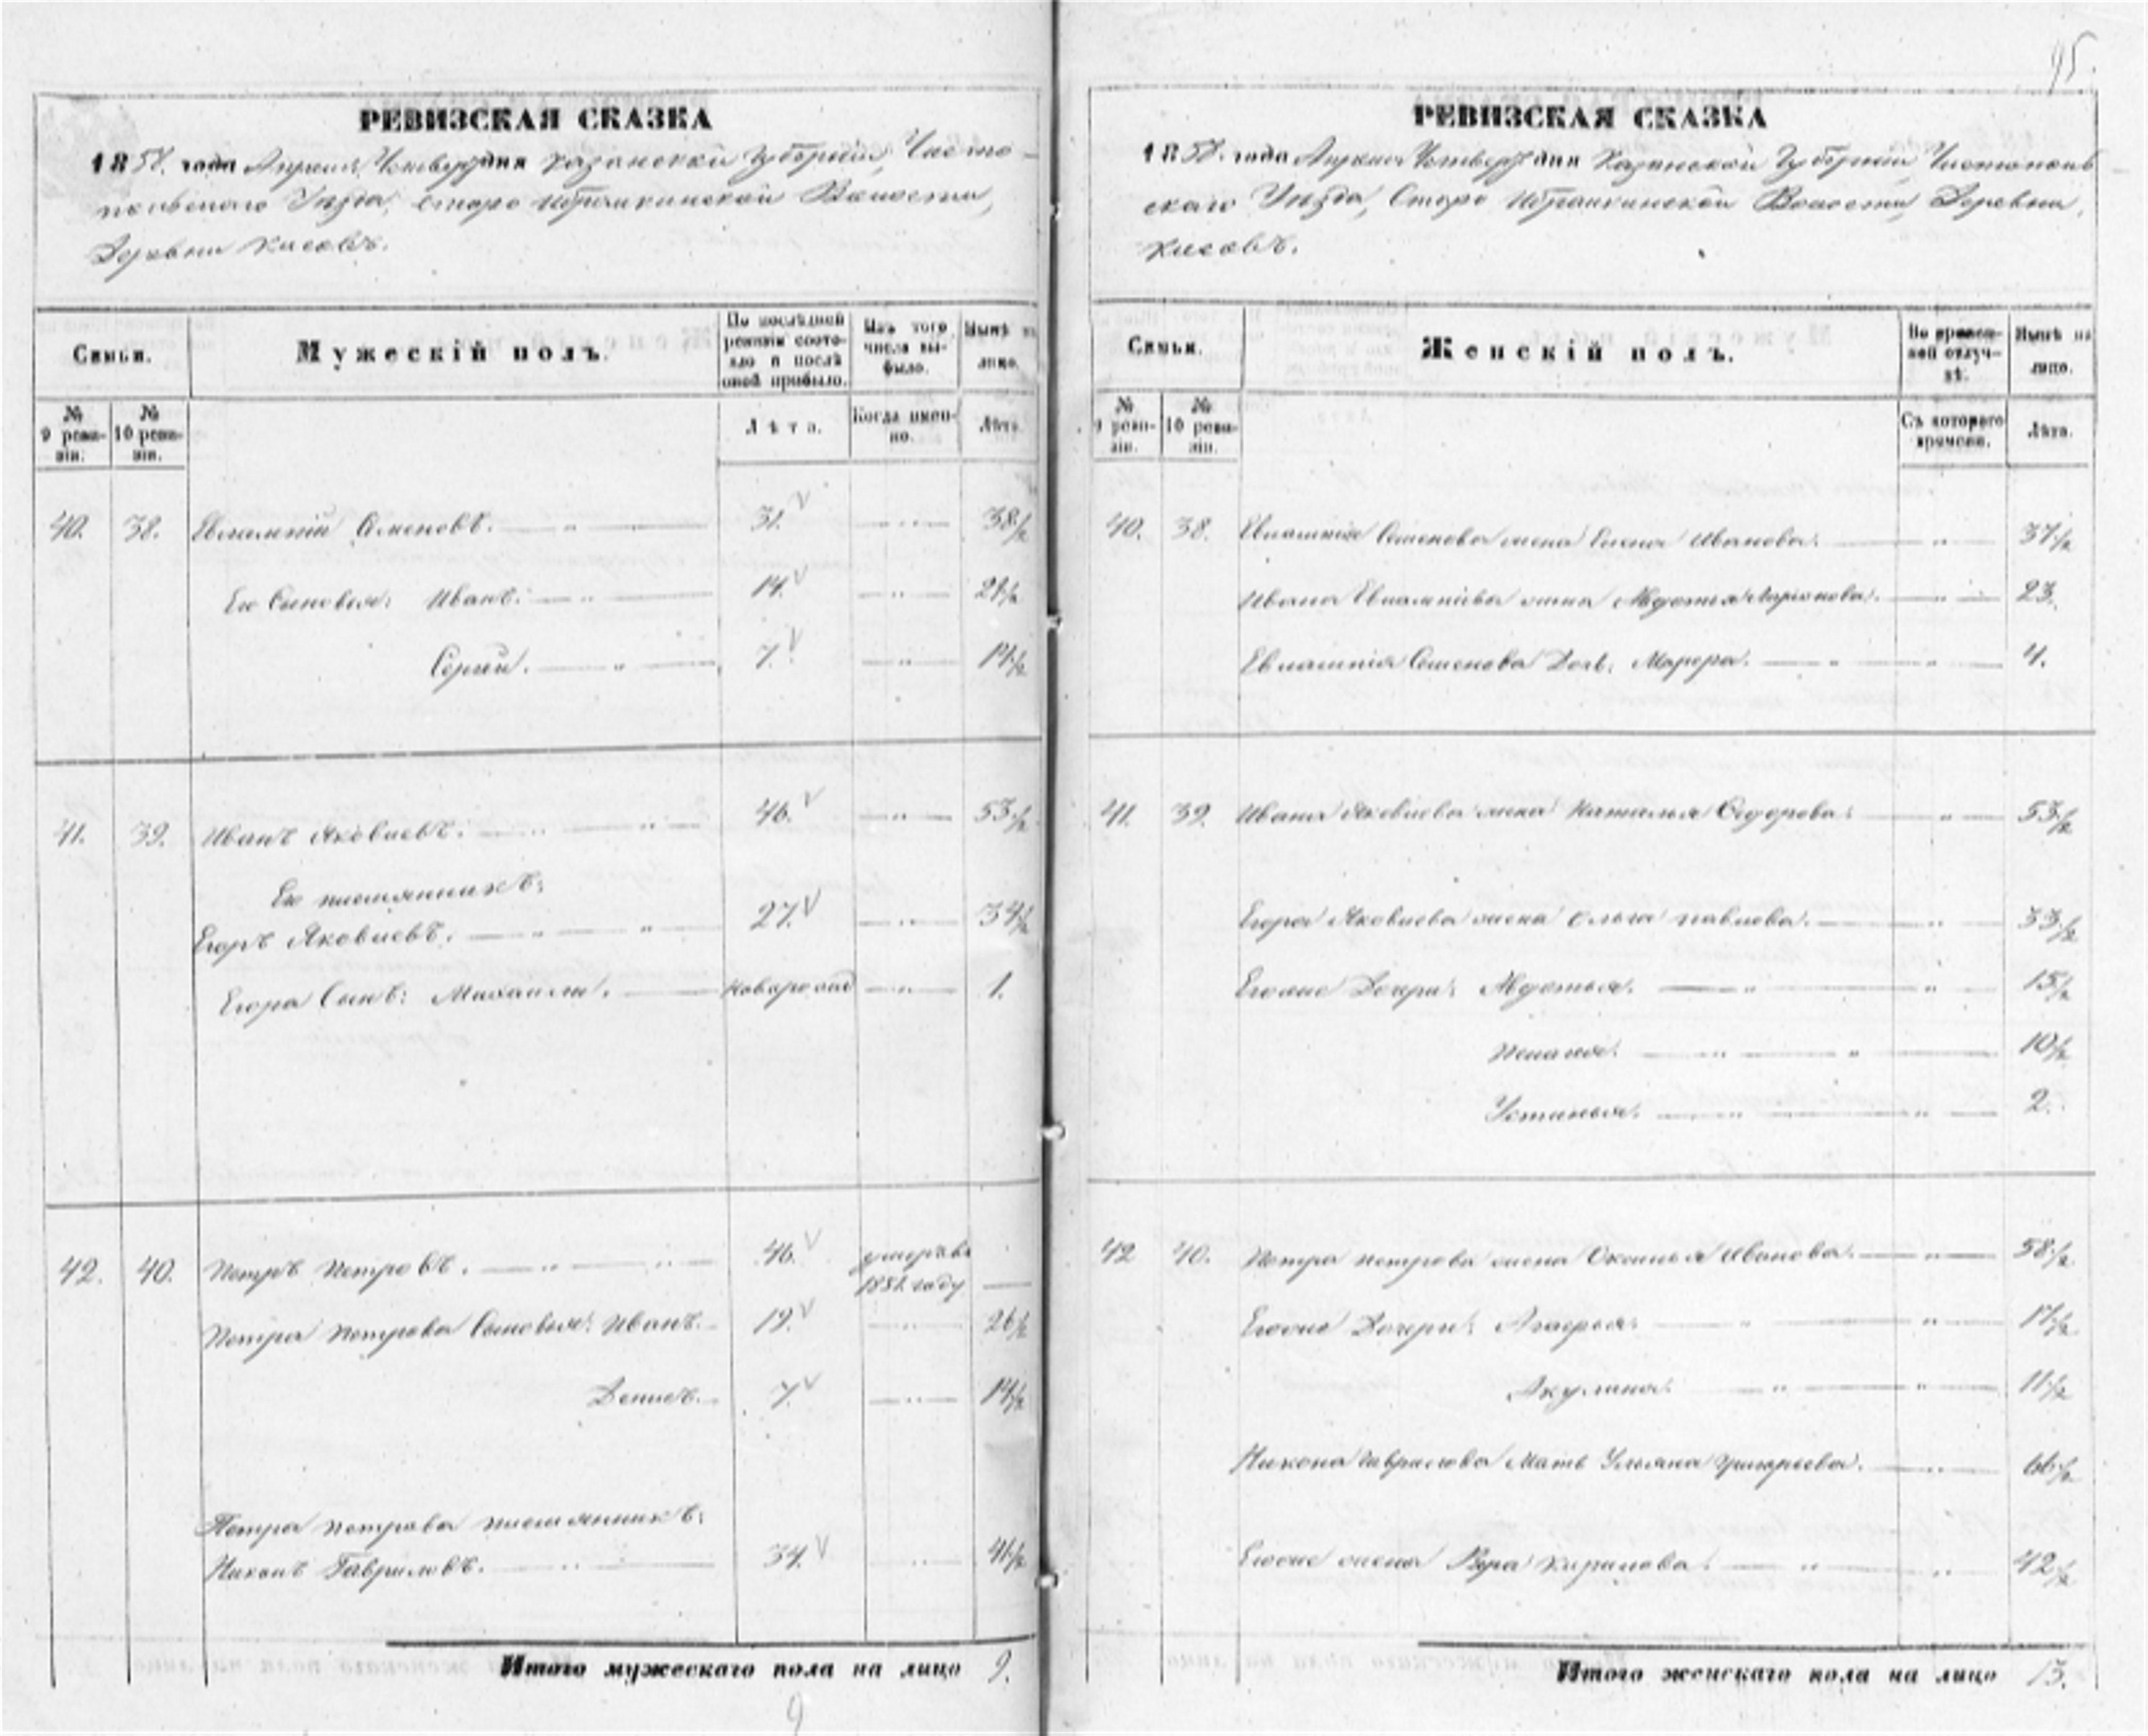 95.
РЕВИЗСКАЯ СКАЗКА
1858. года Апреля Четвертаго дня Казанской Губернии, Чисто-
польскаго Уезда, Старо Ибрайкинской Волости,
Деревни Кисовъ.
Семьи. Мужескій полъ. По послѣдней ревизіи состояло и послѣ оной прибыло. Изъ того числа выбыло. Нынѣ на лицо.
№ 9 ревизіи. № 10 ревизіи. Лѣта. Когда именно. Лѣта.
40. 38. Евлампій Семеновъ. — " — 31. — " — 38 1/2
Его Сыновья: Иванъ. — " — 14. — " — 21 1/2
Сергій. — " — 7. — " — 14 1/2
41. 39. Иванъ Яковлевъ. — " — " — 46. — " — 53 1/2
Его племянникъ:
Егоръ Яковлевъ. — " — " — 27. — " — 34 1/2
Егора Сынъ: Михаила. — новорожд — " — 1.
42. 40. Петръ Петровъ. — " — " — 46. умеръ въ
1851 году —
Петра Петрова Сыновья: Иванъ. 19. — " — 26 1/2
Денисъ. 7. — " — 14 1/2
Петра Петрова племянникъ:
Никонъ Гавриловъ. — " — 34. — " — 41 1/2
Итого мужескаго пола на лицо 9.
9
РЕВИЗСКАЯ СКАЗКА
1858. года Апреля Четвертаго дня Казанской Губернии, Чистополь
скаго Уезда, Старо Ибрайкинской Волости, Деревни
Кисовъ.
Семьи. Женскій полъ. Во временной отлучкѣ. Нынѣ на лицо.
№ 9 ревизіи. № 10 ревизіи. Съ котораго времени. Лѣта.
40. 38. Евлампія Семенова жена Елена Иванова. — " — 37 1/2
Ивана Евлампіева жена Авдотья Ларионова. — " — 23.
Евлампія Семенова Дочь: Марфа. — " — " — 4.
41. 39. Ивана Яковлева жена Наталья Федорова. — " — 53 1/2
Егора Яковлева жена Ольга Павлова. — " — 33 1/2
Егоже Дочери: Авдотья. — " — " — 15 1/2
Пелагея. — " — " — 10 1/2
Устинья. — " — " — 2.
42 40. Петра Петрова жена Оксинья Иванова. — " — 58 1/2
Егоже Дочери: Агафья. — " — " — 17 1/2
Акулина. — " — " — 11 1/2
Никона Гаврилова Мать Ульяна Григорьева. — " — 66 1/2
Егоже жена Вера Кирилова. — " — " 42 1/2
Итого женскаго пола на лицо 13.